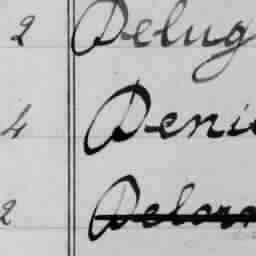 2 Delug
4 Deni
2